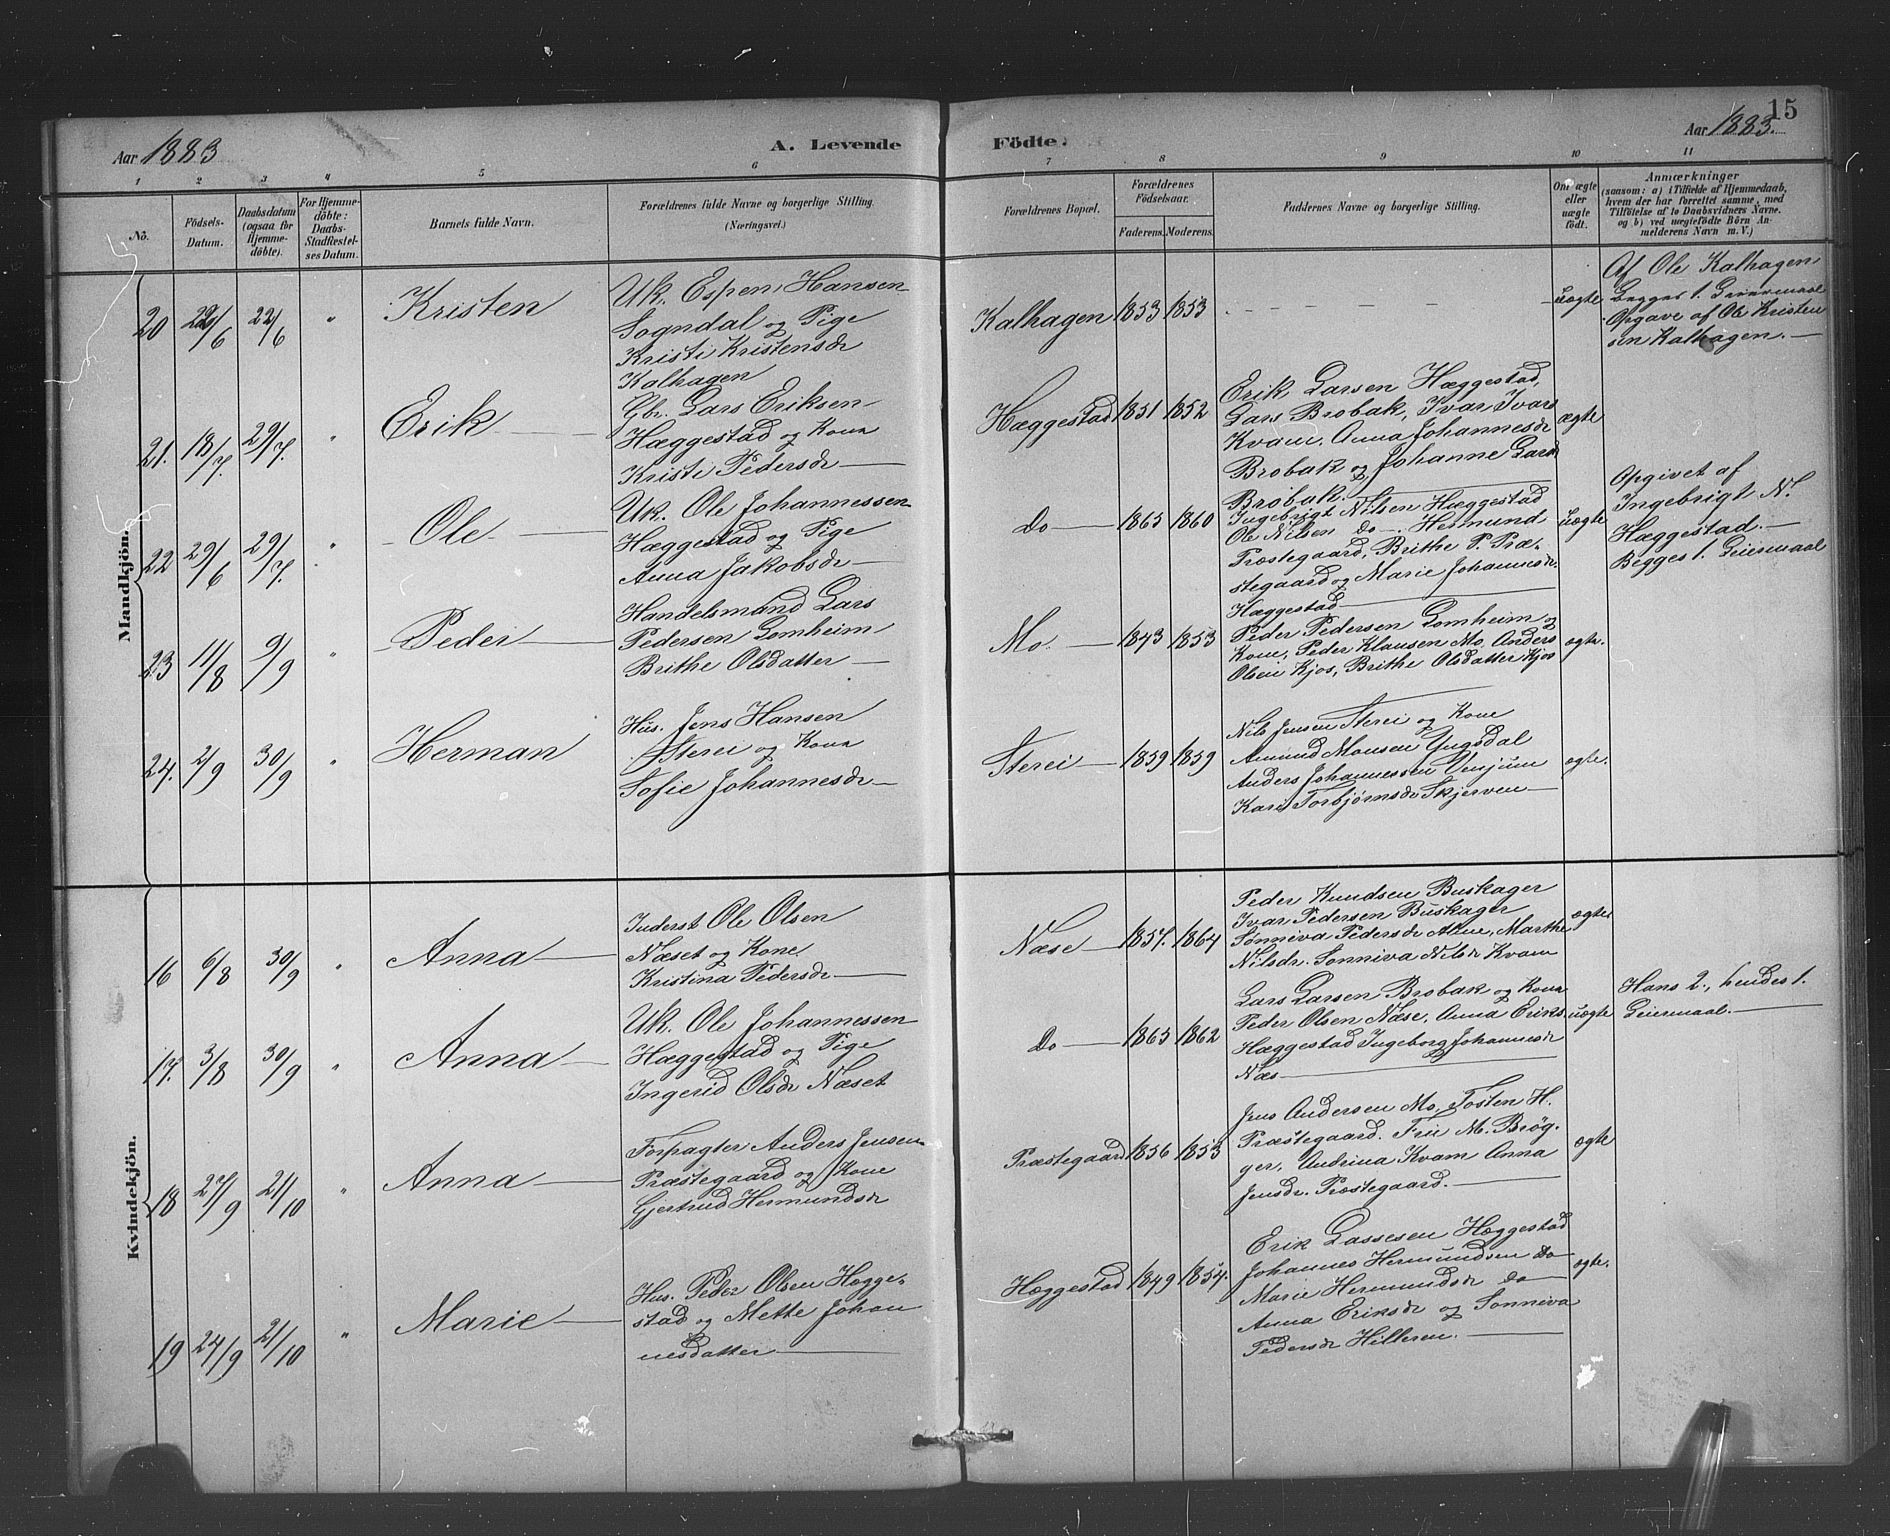 15
Aar 1883
A. Levende
Födte.
Aar 1883.
1 2 3 4 5 6 7 8 9 10 11
No.
Födsels-
Datum.
Daabsdatum
(ogsaa for
Hjemme-
döbte).
For Hjemme-
döbte:
Daabs-
Stadfæstel-
ses Datum.
Barnets fulde Navn.
Forældrenes fulde Navne og borgerlige Stilling.
(Næringsvei.)
Forældrenes Bopæl.
Forældrenes
Födselsaar.
Faderens. Moderens.
Faddernes Navne og borgerlige Stilling.
Om ægte
eller
uægte
födt.
Anmærkninger
(saasom: a) i Tilfælde af Hjemmedaab,
hvem der har forrettet samme, med
Tilföielse af to Daabsvidners Navne,
og b) ved uægtefödte Börn An-
melderens Navn m. V.)
Mandkjön.
20 22/6 22/6 " Kristen
Uk. Espen Hansen
Sogndal og Pige
Kristi Kristensdr
Kalhagen
Kalhagen 1853 1853
uægte
Af Ole Kalhagen
Begges 1. Leiermaal
Opgave af Ole Kristen
sen Kalhagen.
21. 18/7. 29/7. " Erik
Gbr. Lars Eriksen
Hæggestad og Kona
Kristi Pedersdr
Hæggestad 1851 1852
Erik Larsen Hæggestad,
Lars Brobak, Ivar Ivars
Kvam. Anna Johannesdr
Brobak og Johanne Larsd
Brobak.
ægte
22 29/6 29/7. " Ole
Uk. Ole Johannessen
Hæggestad og Pige
Anna Jakobsdr
Do 1865 1860
Ingebrigt Nilsen Hæggestad
Ole Nilsen do Hermund
Præstegaard, Brithe P. Præ-
stegaard og Marie Johannesdr.
Hæggestad
uægte
Opgivet af
Ingebrigt N.
Hæggestad.
Begges 1. Leiermaal
23 11/8 9/9 " Peder
Handelsmand Lars
Pedersen Lomheim
Brithe Olsdatter
Mo. 1843 1853
Peder Pedersen Lomheim og
Kone, Peder Klausen Mo, Anders
Olsen Kjos, Brithe Olsdatter Kjos
ægte.
24. 2/9 30/9 " Herman
Hus. Jens Hansen
Sterei og Kona
Sofie Johannesdr
Sterei 1859 1859
Nils Jensen Sterei og Kone
Amund Monsen Yugsdal
Anders Johannessen Venjum
Kari Torbjørnsdr Skjerven
ægte.
Kvindekjön.
16 6/8 30/9 " Anna
Inderst Ole Olsen
Næset og Kone
Kristina Pedersdr
Næse 1857. 1864
Peder Knudsen Buskager
Ivar Pedersen Buskager
Sønniva Pedersdr Marthe
Nilsdr. Sonniva Nilsdr Kvam
ægte
17. 3/8 30/9 " Anna
Uk. Ole Johannessen
Hæggestad og Pige
Ingerid Olsdr Næset
Do 1865 1862
Lars Larsen Brobak og Kona
Peder Olsen Næse, Anna Eriks
Hæggestad Ingeborg Johannesdr
Næs
uægte
Hans 2., hendes 1.
Leiermaal.
18 27/9 21/10 " Anna
Forpagter Anders Jensen
Præstegaard og Kone
Gjertrud Hermundsdr
Præstegaard 1856 1853
Jens Andersen Mo, Tosten H.
Præstegaard. Fru M. Brøg-
ger, Andrina Kvam Anna
Jensdr. Præstegaard.
ægte
19 24/9 21/10 " Marie
Hus. Peder Olsen Hægge-
stad og Mette Johan
nesdatter
Hæggestad 1849 1854.
Erik Lassesen Hæggestad
Johannes Hermundsen do
Marie Hermundsdr do
Anna Eriksdr og Sonniva
Pedersdr Hilleren.
ægte.